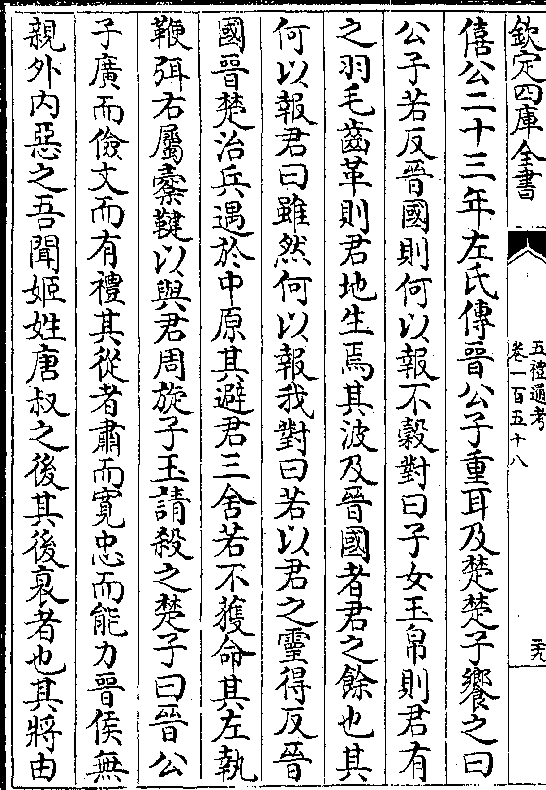 欽定四庫全書
五禮通考
卷一百五十八
元
僖公二十三年左氏傳晉公子重耳及楚楚子饗之曰
公子若反晉國則何以報不穀對曰子女玉帛則君有
之羽毛齒革則君地生焉其波及晉國者君之餘也其
何以報君曰雖然何以報我對曰若以君之靈得反晉
國晉楚治兵遇於中原其避君三舍若不獲命其左執
鞭弭右屬櫜鞬以與君周旋子玉請殺之楚子曰晉公
子廣而儉文而有禮其從者肅而寛忠而能力晉侯無
親外内惡之吾聞姬姓唐叔之後其後衰者也其將由